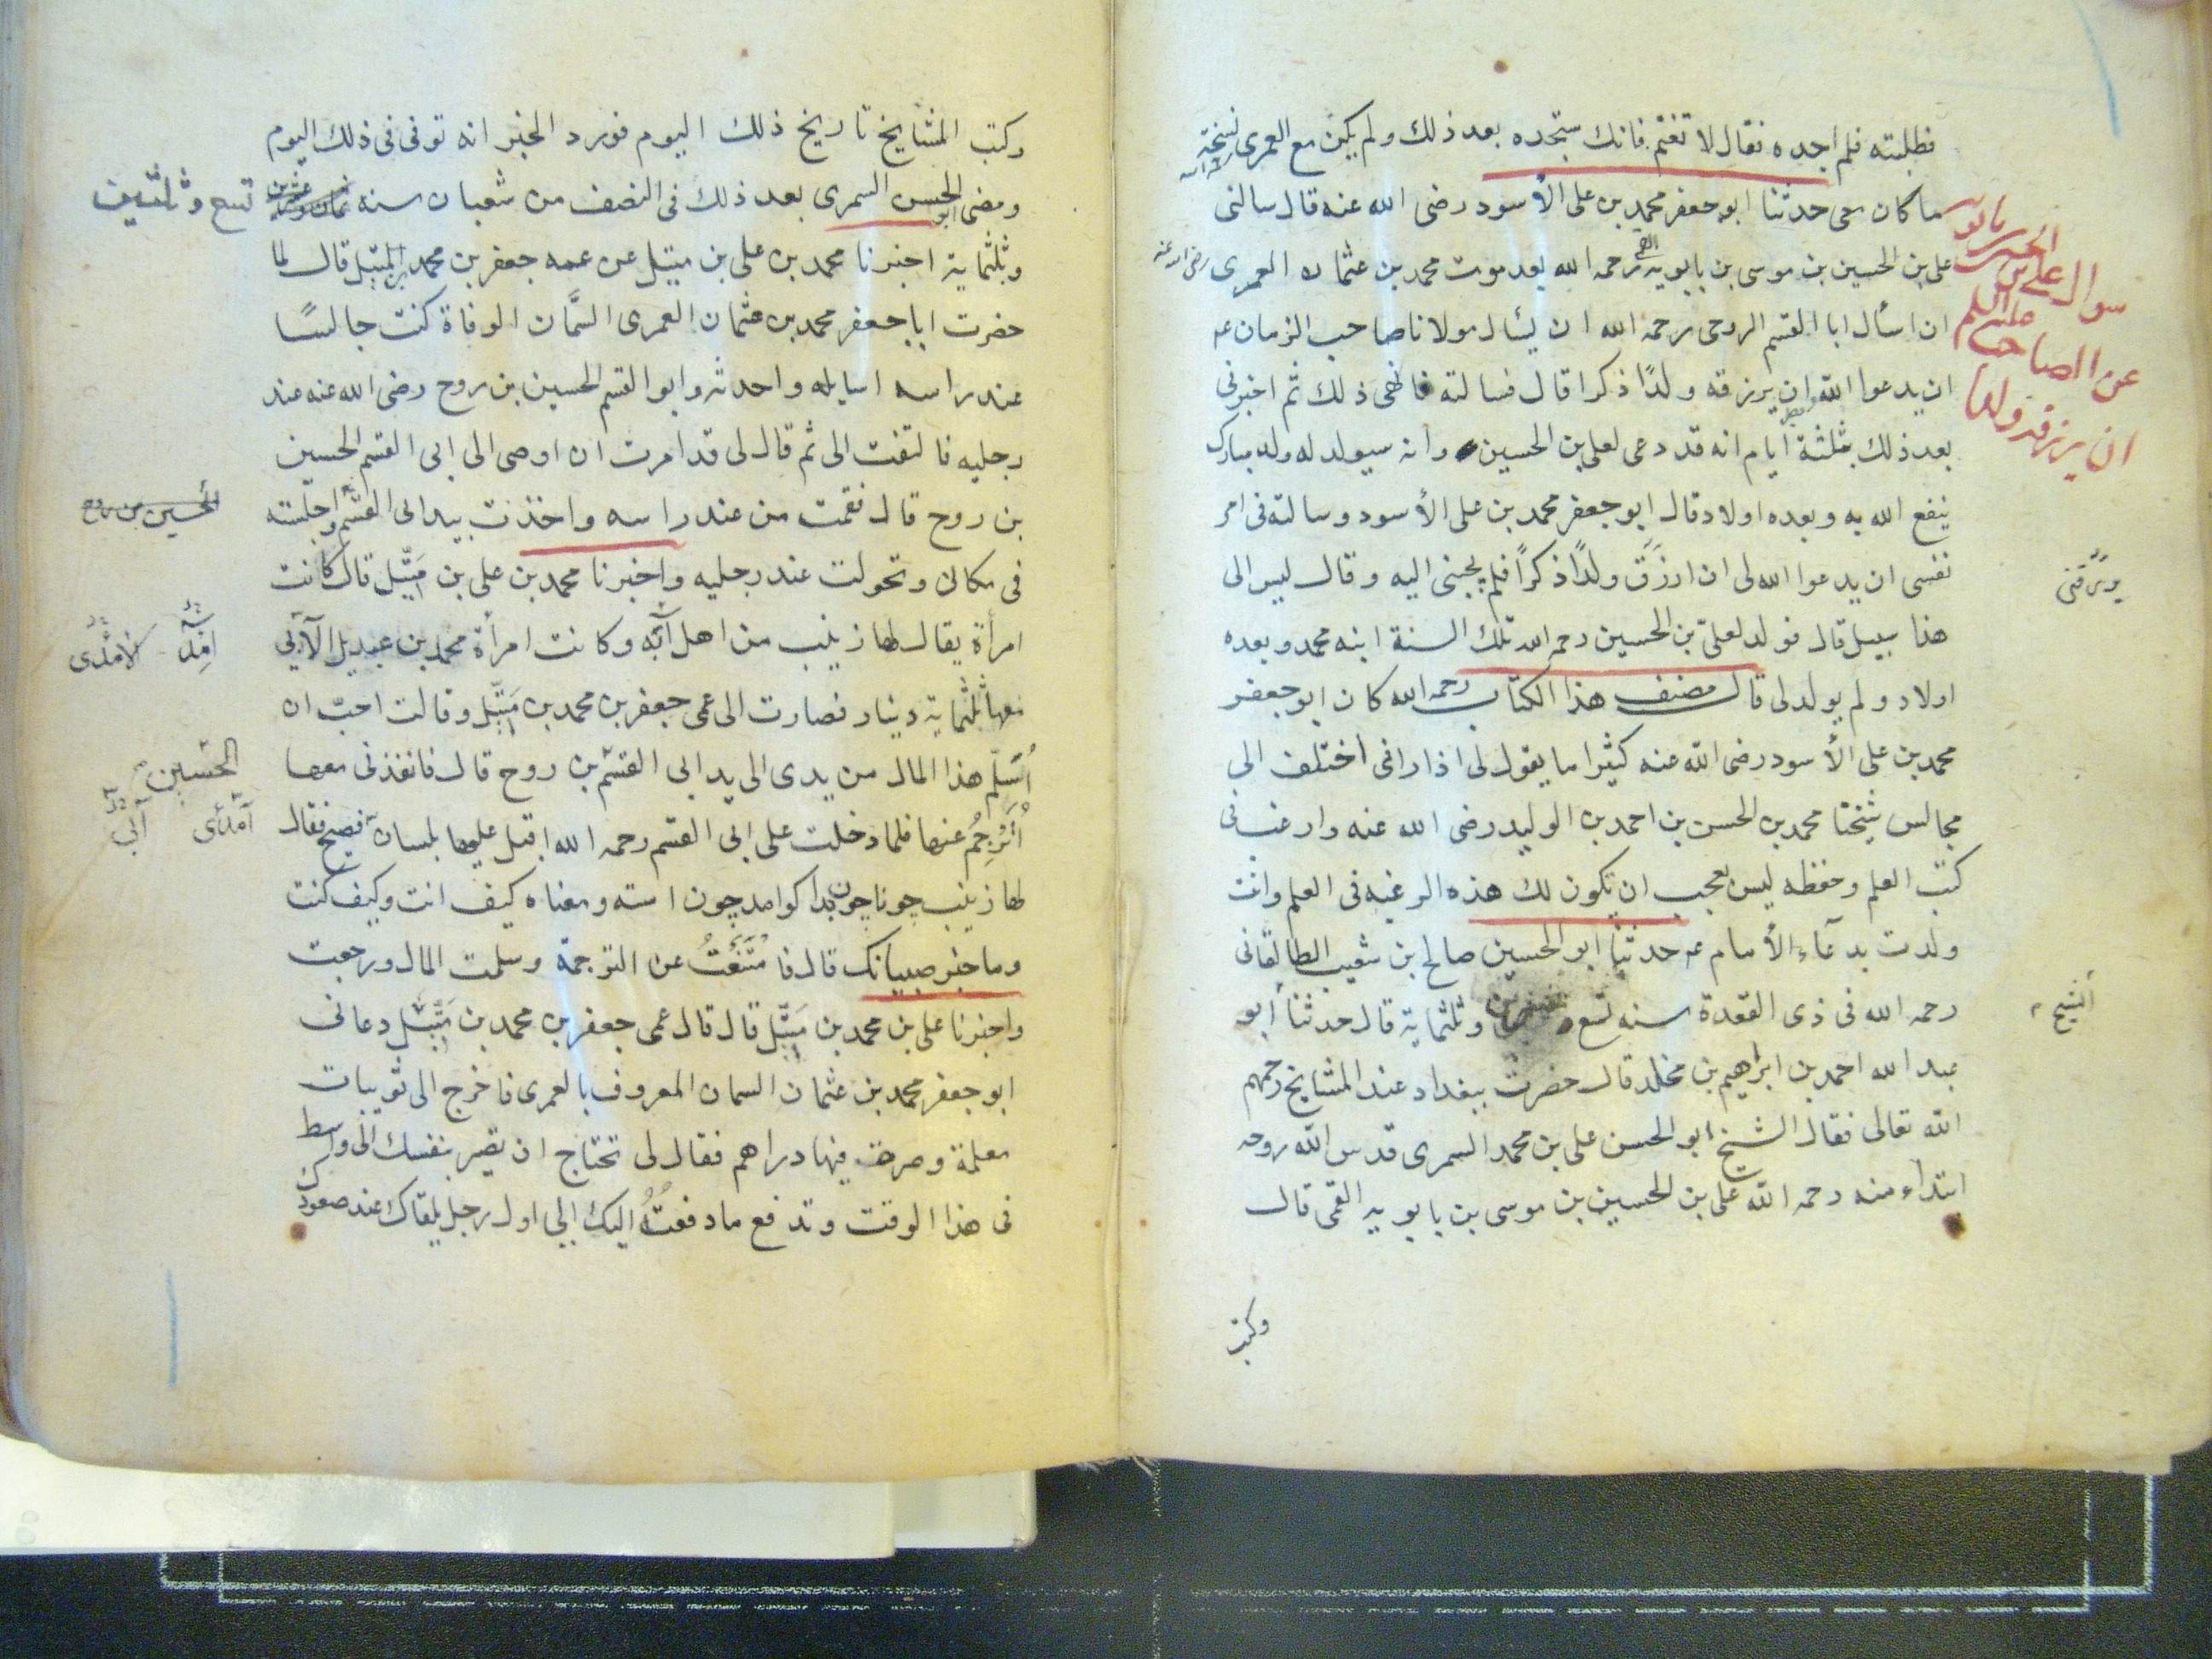 فطلبته فلم اجده فقال لا تغتم فانك ستجده بعد ذلك ولم يكن مع العمرى نسخة
ما كان معى حدثنا ابو جعفر محمد بن على الأسود رضى الله عنه قال سالنى
على بن الحسين بن موسى بن بابويه القمى رحمه الله بعد موت محمد بن عثمان العمرى رضى الله عنه
ان اسأل ابا القسم الروحى رحمه الله ان يسأل مولانا صاحب الزمان ع
ان يدعوا الله ان يرزقه ولدًا ذكرا قال فسالته فانهى ذلك ثم اخبرنى
بعد ذلك بثلثة ايام انه قد دعى لعلى بن الحسين وانه سيولد له ولد مبارك
ينفع الله به وبعده اولاد قال ابو جعفر محمد بن على الأسود وسالته فى امر
نفسى ان يدعوا الله لى ان ارزَق ولدًا ذكرًا فلم يجبنى اليه وقال ليس الى
هذا سبيل قال فولد لعلى بن الحسين رحمه الله تلك السنة ابنه محمد وبعده
اولاد ولم يولد لى قال مصنف هذا الكتاب رحمه الله كان ابو جعفر
محمد بن على الأسود رضى الله عنه كثيرا ما يقول لى اذا رانى اختلف الى
مجالس شيخنا محمد بن الحسن بن احمد بن الوليد رضى الله عنه وارغب فى
كتب العلم وحفظه ليس بعجب ان تكون لك هذه الرغبة فى العلم وانت
ولدت بدعآء الأمام ع حدثنا ابو الحسين صالح بن شعيب الطالقانى
رحمه الله فى ذى القعدة سنه تسع وثلثماية قال حدثنا ابو
عبد الله احمد بن ابراهيم بن مخلد قال حضرت ببغداد عند المشايخ رحمهم
الله تعالى فقال الشيخ ابو الحسن على بن محمد السمرى قدس الله روحه
ابتداء منه رحمه الله على بن الحسين بن موسى بن بابويه القمى قال
وكتب
سوال على بن الحسين بابويه
عن الصاحب عليه السلم
ان يرزقه ولدا
يرزقنى
الشيخ
وكتب المشايخ تاريخ ذلك اليوم فورد الخبر انه توفى فى ذلك اليوم
ومضى ابو الحسن السمرى بعد ذلك فى النصف من شعبان سنه ثمان وعشرين تسع وثلثين
وثلثماية اخبرنا محمد بن على بن متيل عن عمه جعفر بن محمد بن متيل قال لما
حضرت ابا جعفر محمد بن عثمان العمرى السمَّان الوفاة كنت جالسًا
عند راسه اسايله واحدثه وابو القسم الحسين بن روح رضى الله عنه عند
رجليه فالتفت الى ثم قال لى قد امرت ان اوصى الى ابى القسم الحسين
بن روح قال فقمت من عند راسه واخذت بيد ابى القسم واجلسته
فى مكانى وتحولت عند رجليه واخبرنا محمد بن على بن متيل قال كانت
امرأة يقال لها زينب من اهل آبه وكانت امرأة محمد بن عبديل الآبي
معها ثلثماية دينار فصارت الى عمى جعفر بن محمد بن متيل وقالت احب ان
اُسَلّم هذا المال من يدى الى يد ابى القسم بن روح قال فانفذنى معها
اُتَرْجِمُ عنها فلما دخلت على ابى القسم رحمه الله اقبل عليها بلسان فصيح فقال
لها زينب چونا چون بدا كوامد چون استه ومعناه كيف انت وكيف كنت
وما خبر صبيانك قال فامتَنَعْتُ عن الترجمة وسلمت المال ورجعت
واخبرنا على بن محمد بن متيل قال قال عمى جعفر بن محمد بن متيل دعانى
ابو جعفر محمد بن عثمان السمان المعروف بالعمرى فاخرج الى ثويبات
معلمة وصرة فيها دراهم فقال لى تحتاج ان تصير بنفسك الى واسط
فى هذا الوقت وتدفع ما دفعتُهُ اليك الى اول رجل يلقاك عند صعودك
الحسين بن روح
الحسين
آبي